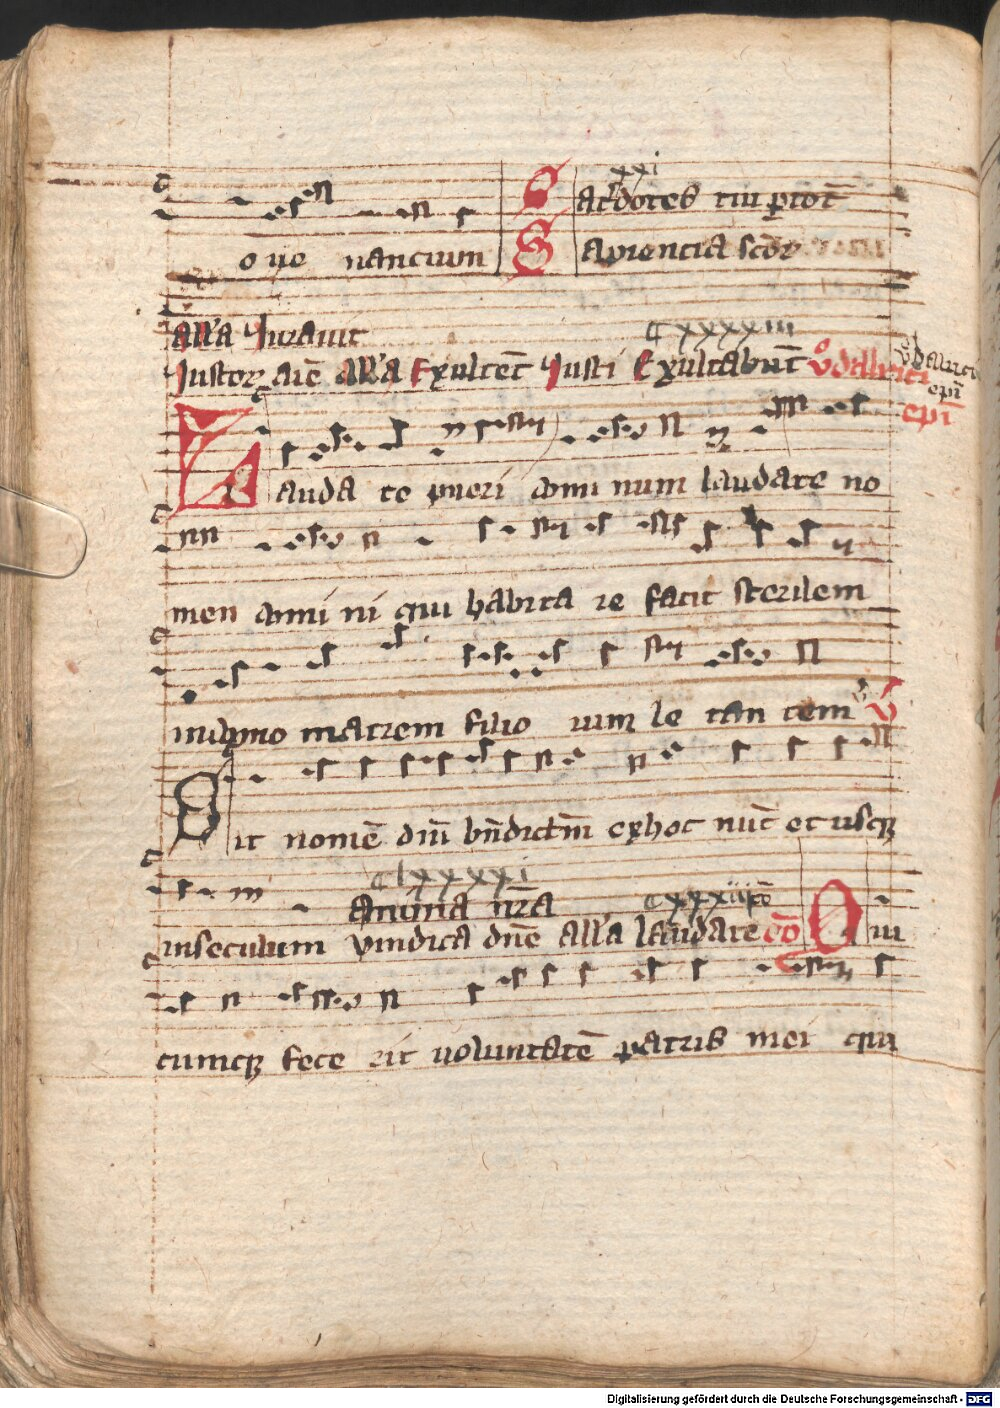 xxi
Sacdotes tui ptot
oue nancium Sapiencia scor
all'a Iurauit
cxxxxiii
Iustor aie all'a Exultet Iusti Exultabunt Vdalrici
Vdalrici epi
epi
Lauda te pueri domi num laudate no
men domi ni qui habita re facit sterilem
in domo matrem filio rum le tan tem V
Sit nome dni bndictm exhoc nuc et usq
clxxxxi
anima nra
cxxxii
inseculum Vindica dne all'a laudate co Qui
cumq fece rit uoluntate patris mei qui
Digitalisierung gefördert durch die Deutsche Forschungsgemeinschaft - DFG